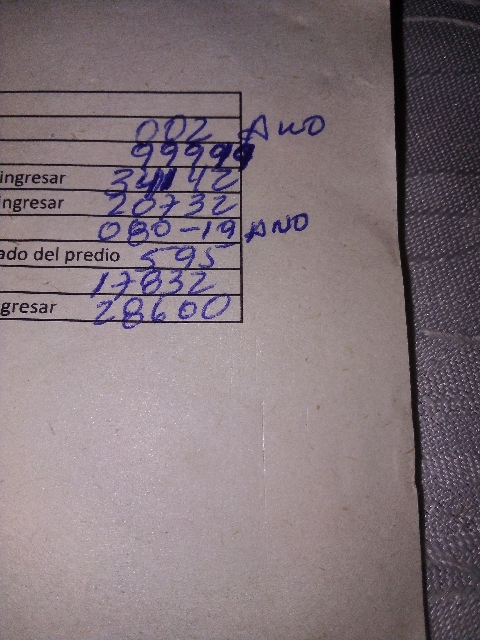 002 ANO
99999
ingresar 34142
ingresar 20732
080-19 ANO
ado del predio 595
17832
gresar 28600